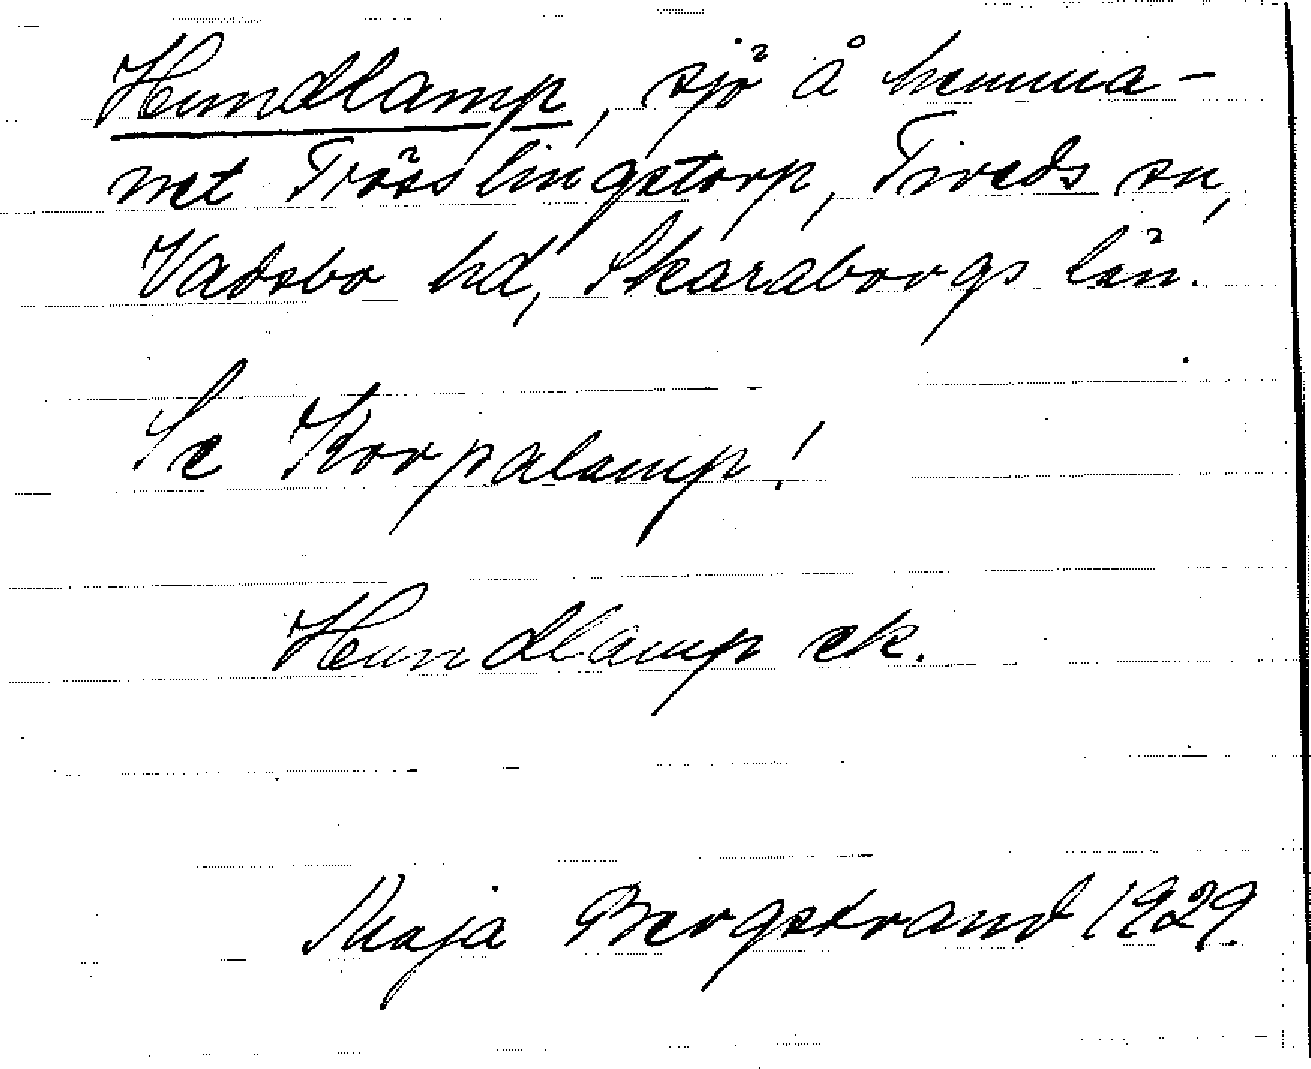 Hundlamp, sjö å hemma-
net Trösslingstorp, Tiveds sn,
Vadsbo hd, Skaraborgs län.
Se Korpalamp!
Hundlamp ek.
Maja Bergstrand 1929.